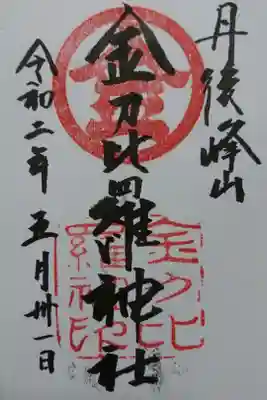 丹後峰山
金刀比羅神社
令和二年 五月卅一日
金
金刀比
羅神社印